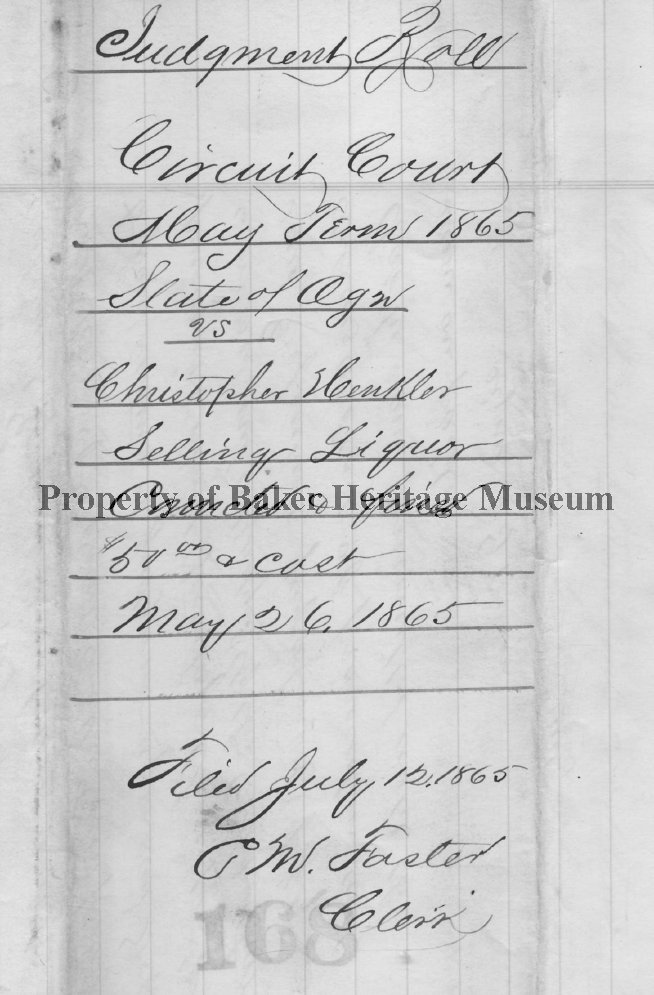 Judgment Roll
Circuit Court
May Term 1865
State of Ogn
vs
Christopher Henkler
Selling Liquor
Property of Baker Heritage Museum
& fined
$50 00 & cost
May 26, 1865
Filed July 12, 1865
C M. Foster
Clerk
168